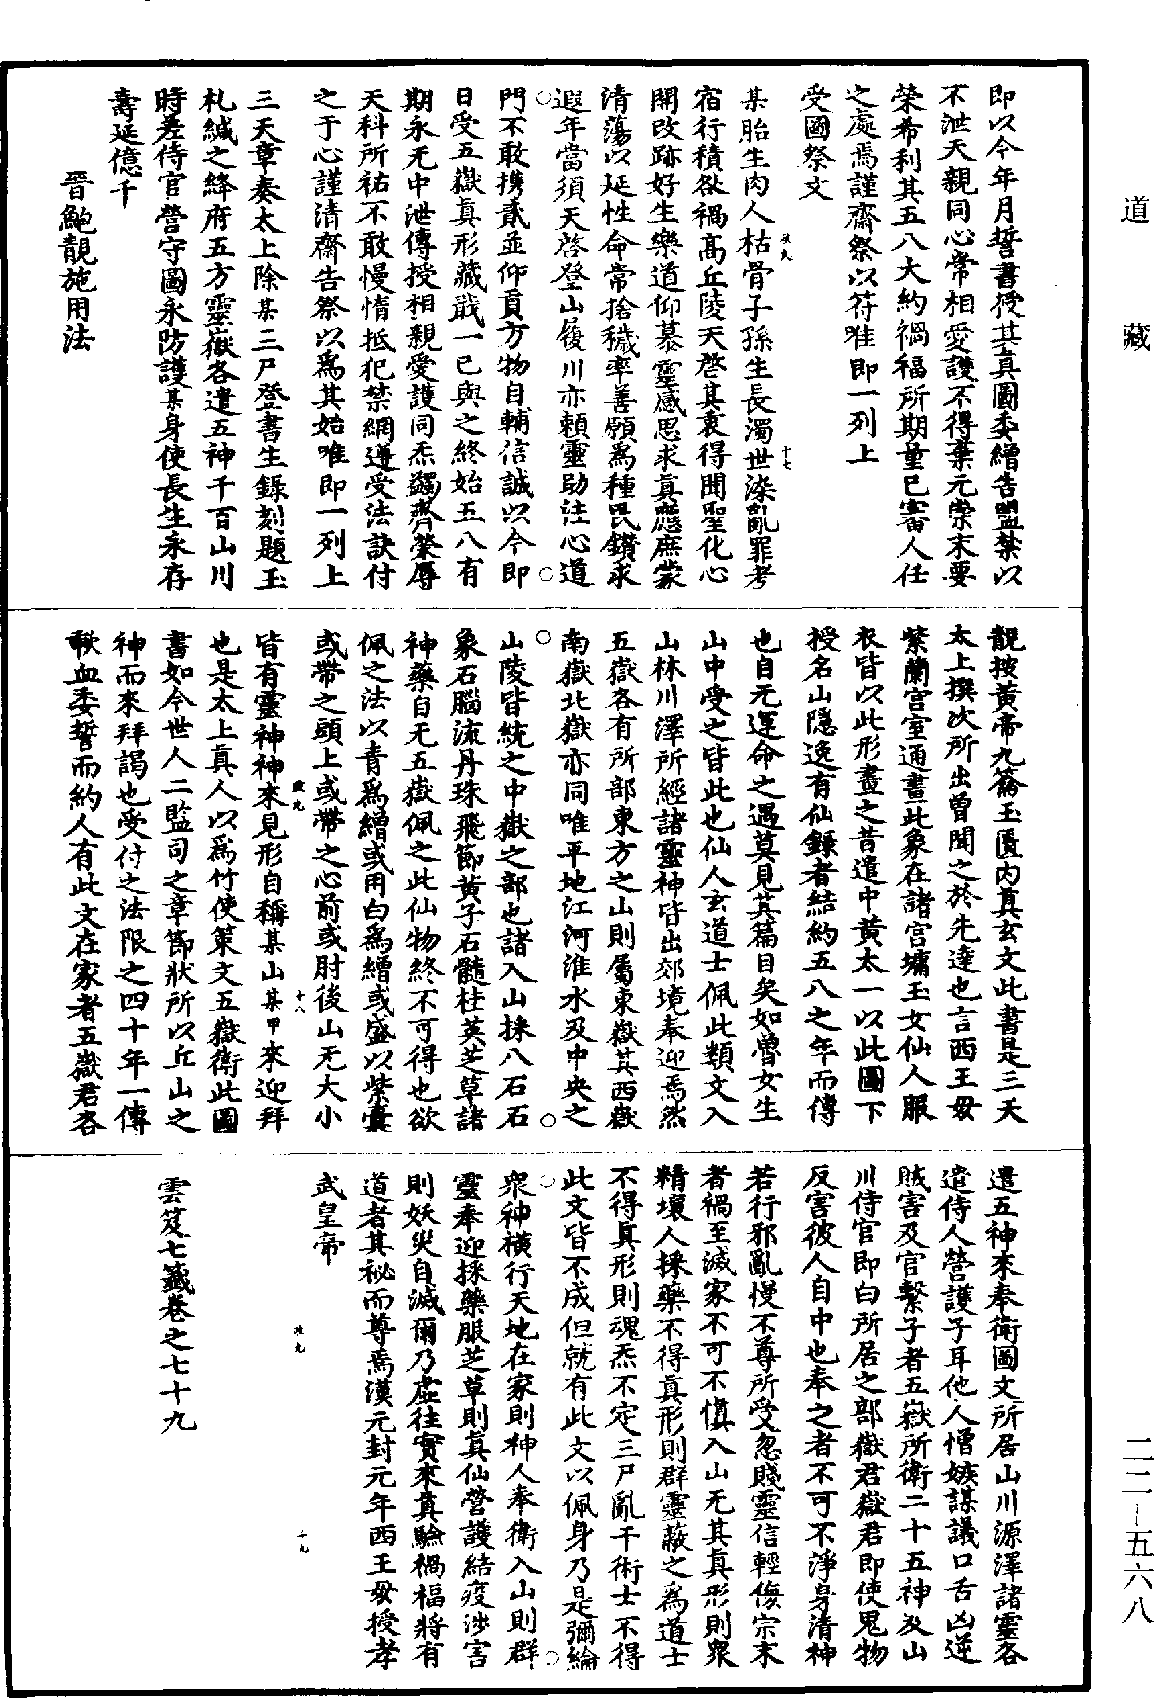 道藏
即以今年月誓書授其真圖委繒告盟禁以
不泄天親同心常相愛護不得棄元崇末要
榮希利其五八大約禍福所期量己審人任
之處焉謹齋祭以符唯即一列上
受圖祭文
某胎生肉人枯骨子孫生長濁世染亂罪考
宿行積咎禍高丘陵天啓其衷得聞聖化心
開改跡好生樂道仰慕靈感思求真應庶蒙
清蕩以延性命常捨穢率善願爲種民鑽求
遐年當須天啓登山履川亦賴靈助注心道
門不敢攜貳並仰貢方物自輔信誠以今即
日受五嶽真形藏戢一已與之終始五八有
期永无中泄傳授相親愛護同炁蠲齊榮辱
天科所祐不敢慢惰抵犯禁網遵受法訣付
之于心謹清齋告祭以爲其始唯即一列上
三天章奏太上除某三尸登書生錄刻題玉
札緘之絳府五方靈嶽各遣五神千百山川
時差侍官營守圖永防護某身使長生永存
壽延億千
晉鮑靚施用法
靚按黃帝九籥玉匱內真玄文此書是三天
太上撰次所出曾聞之於先達也言西王母
紫蘭宮室通畫此象在諸宮墉玉女仙人服
衣皆以此形畫之昔遣中黃太一以此圖下
授名山隱逸有仙錄者結約五八之年而傳
也自无運命之遇莫見其篇目矣如魯女生
山中受之皆此也仙人玄道士佩此類文入
山林川澤所經諸靈神皆出郊境奉迎焉然
五嶽各有所部東方之山則屬東嶽其西嶽
南嶽北嶽亦同唯平地江河淮水及中央之
山陵皆統之中嶽之部也諸入山採八石石
象石腦流丹珠飛節黃子石髓桂英芝草諸
神藥自无五嶽佩之此仙物終不可得也欲
佩之法以青爲繒或用白爲繒或盛以紫囊
或帶之頭上或帶之心前或肘後山无大小
皆有靈神神來見形自稱某山某甲來迎拜
也是太上真人以爲竹使策文五嶽衛此圖
書如今世人二監司之章節狀所以丘山之
神而來拜謁也受付之法限之四十年一傳
歃血委誓而約人有此文在家者五嶽君各
遣五神來奉衛圖文所居山川源澤諸靈各
遣侍人營護子耳他人憎嫉謀議口舌凶逆
賊害及官繫子者五嶽所衛二十五神及山
川侍官即白所居之部嶽君嶽君即使鬼物
反害彼人自中也奉之者不可不淨身清神
若行邪亂慢不尊所受忽賤靈信輕侮宗末
者禍至滅家不可不慎入山无其真形則衆
精壞人採藥不得真形則群靈蔽之爲道士
不得真形則魂炁不定三尸亂干術士不得
此文皆不成但就有此文以佩身乃是彌綸
衆神橫行天地在家則神人奉衛入山則群
靈奉迎採藥服芝草則真仙營護結疫涉害
則妖災自滅爾乃虛往實來真驗禍福將有
道者其祕而尊焉漢元封元年西王母授孝
武皇帝
雲笈七籤卷之七十九
二二-五六八